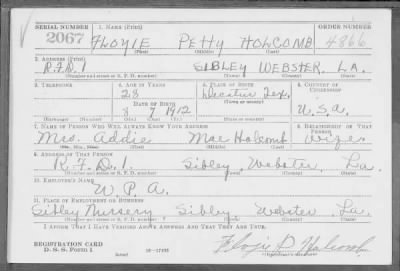 SERIAL NUMBER 1. NAME (Print) ORDER NUMBER
2067 FLOYIE PETTY HOLCOMB 4866
(First) (Middle) (Last)
2. ADDRESS (Print)
R.F.D.1 SIBLEY WEBSTER, LA.
(Number and street or R. F. D. number) (Town) (County) (State)
3. TELEPHONE 4. AGE IN YEARS 5. PLACE OF BIRTH 6. COUNTRY OF CITIZENSHIP
28 Decatur Tex.
DATE OF BIRTH (Town or county)
8 7 1912 U.S.A.
(Exchange) (Number) (Mo.) (Day) (Yr.) (State or country)
7. NAME OF PERSON WHO WILL ALWAYS KNOW YOUR ADDRESS 8. RELATIONSHIP OF THAT PERSON
Mrs. Addie Mae Holcomb wife
(Mr., Mrs., Miss) (First) (Middle) (Last)
9. ADDRESS OF THAT PERSON
R.F.D.1. Sibley, Webster, La.
(Number and street or R. F. D. number) (Town) (County) (State)
10. EMPLOYER'S NAME
W.P.A.
11. PLACE OF EMPLOYMENT OR BUSINESS
Sibley Nursery Sibley Webster, La.
(Number and street or R. F. D. number) (Town) (County) (State)
I AFFIRM THAT I HAVE VERIFIED ABOVE ANSWERS AND THAT THEY ARE TRUE.
REGISTRATION CARD
D. S. S. FORM 1 16-17105 Floyie P. Holcomb
(over) (Registrant's signature)